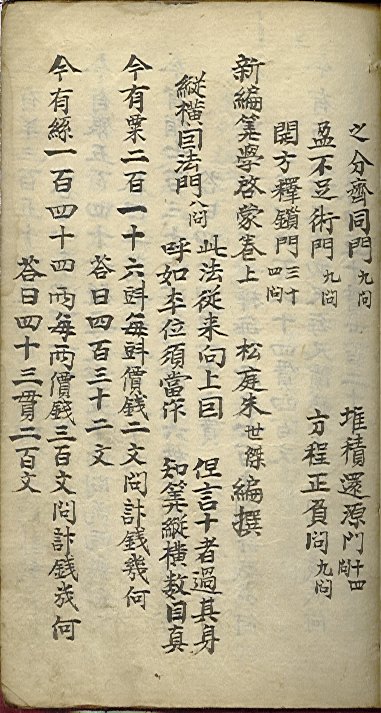 之分齊同門九問　堆積還源門十四問
盈不足術門九問　方程正負問九問
開方釋鎖門三十四問
新編筭學啓蒙卷上　松庭朱世傑編撰
縱橫因法門八問　此法從来向上因　但言十者過其身
呼如本位須當作　知筭縱橫数目真
今有粟二百一十六㪷每㪷價錢二文问計錢幾何
答曰四百三十二文
今有絲一百四十四两每两價錢三百文问計錢幾何
答曰四十三貫二百文